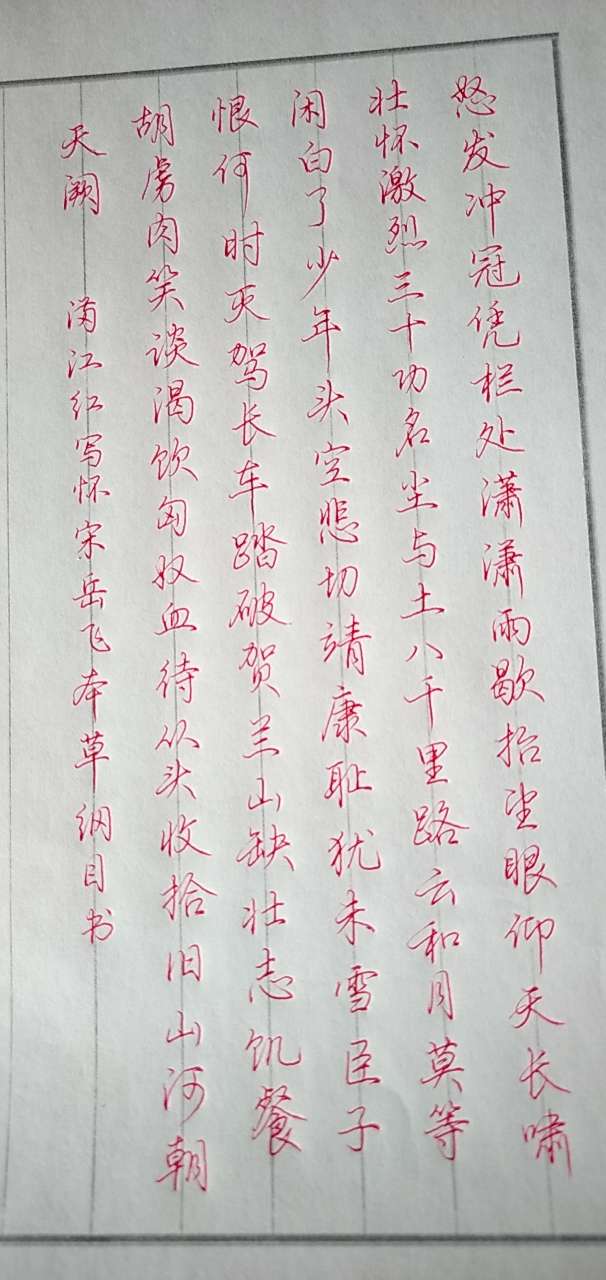 怒发冲冠凭栏处潇潇雨歇抬望眼仰天长啸
壮怀激烈三十功名尘与土八千里路云和月莫等
闲白了少年头空悲切靖康耻犹未雪臣子
恨何时灭驾长车踏破贺兰山缺壮志饥餐
胡虏肉笑谈渴饮匈奴血待从头收拾旧山河朝
天阙 满江红写怀宋岳飞本草纲目书